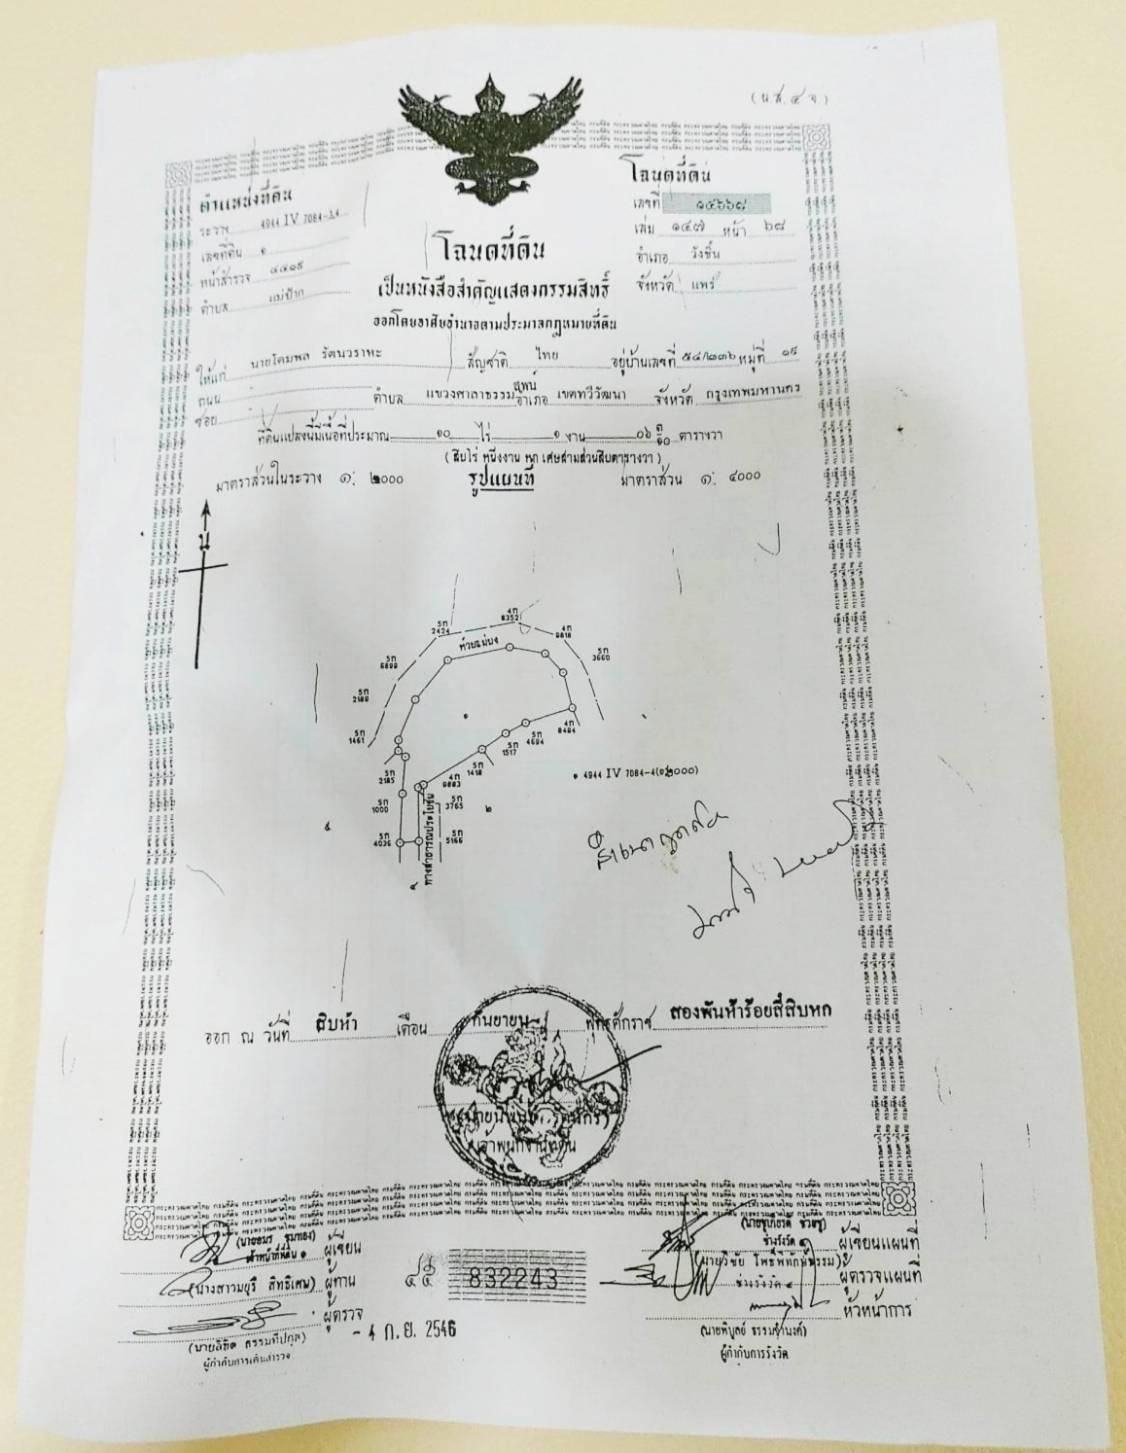 (น.ส. ๔ จ)
ตำแหน่งที่ดิน
ระวาง 4944 IV 7084-3,4
เลขที่ดิน ๑
หน้าสำรวจ ๔๔๑๕
ตำบล แม่ป้าก
โฉนดที่ดิน
เลขที่ ๑๔๖๖๘
เล่ม ๑๔๗ หน้า ๖๘
อำเภอ วังชิ้น
จังหวัด แพร่
โฉนดที่ดิน
เป็นหนังสือสำคัญแสดงกรรมสิทธิ์
ออกโดยอาศัยอำนาจตามประมวลกฎหมายที่ดิน
ให้แก่ นายโคมพล รัตนวราหะ สัญชาติ ไทย อยู่บ้านเลขที่ ๕๔/๑๓๖ หมู่ที่ ๑๕
ถนน ตำบล แขวงศาลาธรรมสพน์ อำเภอ เขตทวีวัฒนา จังหวัด กรุงเทพมหานคร
ซอย
ที่ดินแปลงนี้มีเนื้อที่ประมาณ ๑๐ ไร่ ๑ งาน ๐๖ ๓/๑๐ ตารางวา
(สิบไร่ หนึ่งงาน หก เศษสามส่วนสิบตารางวา)
มาตราส่วนในระวาง ๑: ๒๐๐๐ รูปแผนที่ มาตราส่วน ๑: ๔๐๐๐
น
5ก 2424
4ก 8352
ห้วยแม่บง
4ก 9818
5ก 3660
5ก 6899
5ก 2188
5ก 1461
๑
4ก 8484
5ก 4694
5ก 1517
5ก 1418
5ก 2185
4ก 9883
๑ 4944 IV 7084-4(๑:๒๐๐๐)
5ก 1000
5ก 3765
๒
5ก 4036
ทางสาธารณประโยชน์
5ก 5166
ออก ณ วันที่ สิบห้า เดือน กันยายน พุทธศักราช สองพันห้าร้อยสี่สิบหก
เจ้าพนักงานที่ดิน
(นายอมร ชุมทอง)
เจ้าหน้าที่ที่ดิน ๑ ผู้เขียน
(นางสาวมยุรี สิทธิเศษ) ผู้ทาน
ผู้ตรวจ
(นายลิขิต ธรรมทีปกุล)
ผู้กำกับการเดินสำรวจ
832243
- 4 ก.ย. 2546
ช่างรังวัด ๑ ผู้เขียนแผนที่
(นายวิชัย โพธิ์พิทักษ์ธรรม)
ช่างรังวัด ๔ ผู้ตรวจแผนที่
หัวหน้าการ
(นายพิบูลย์ ธรรมจำนงค์)
ผู้กำกับการรังวัด